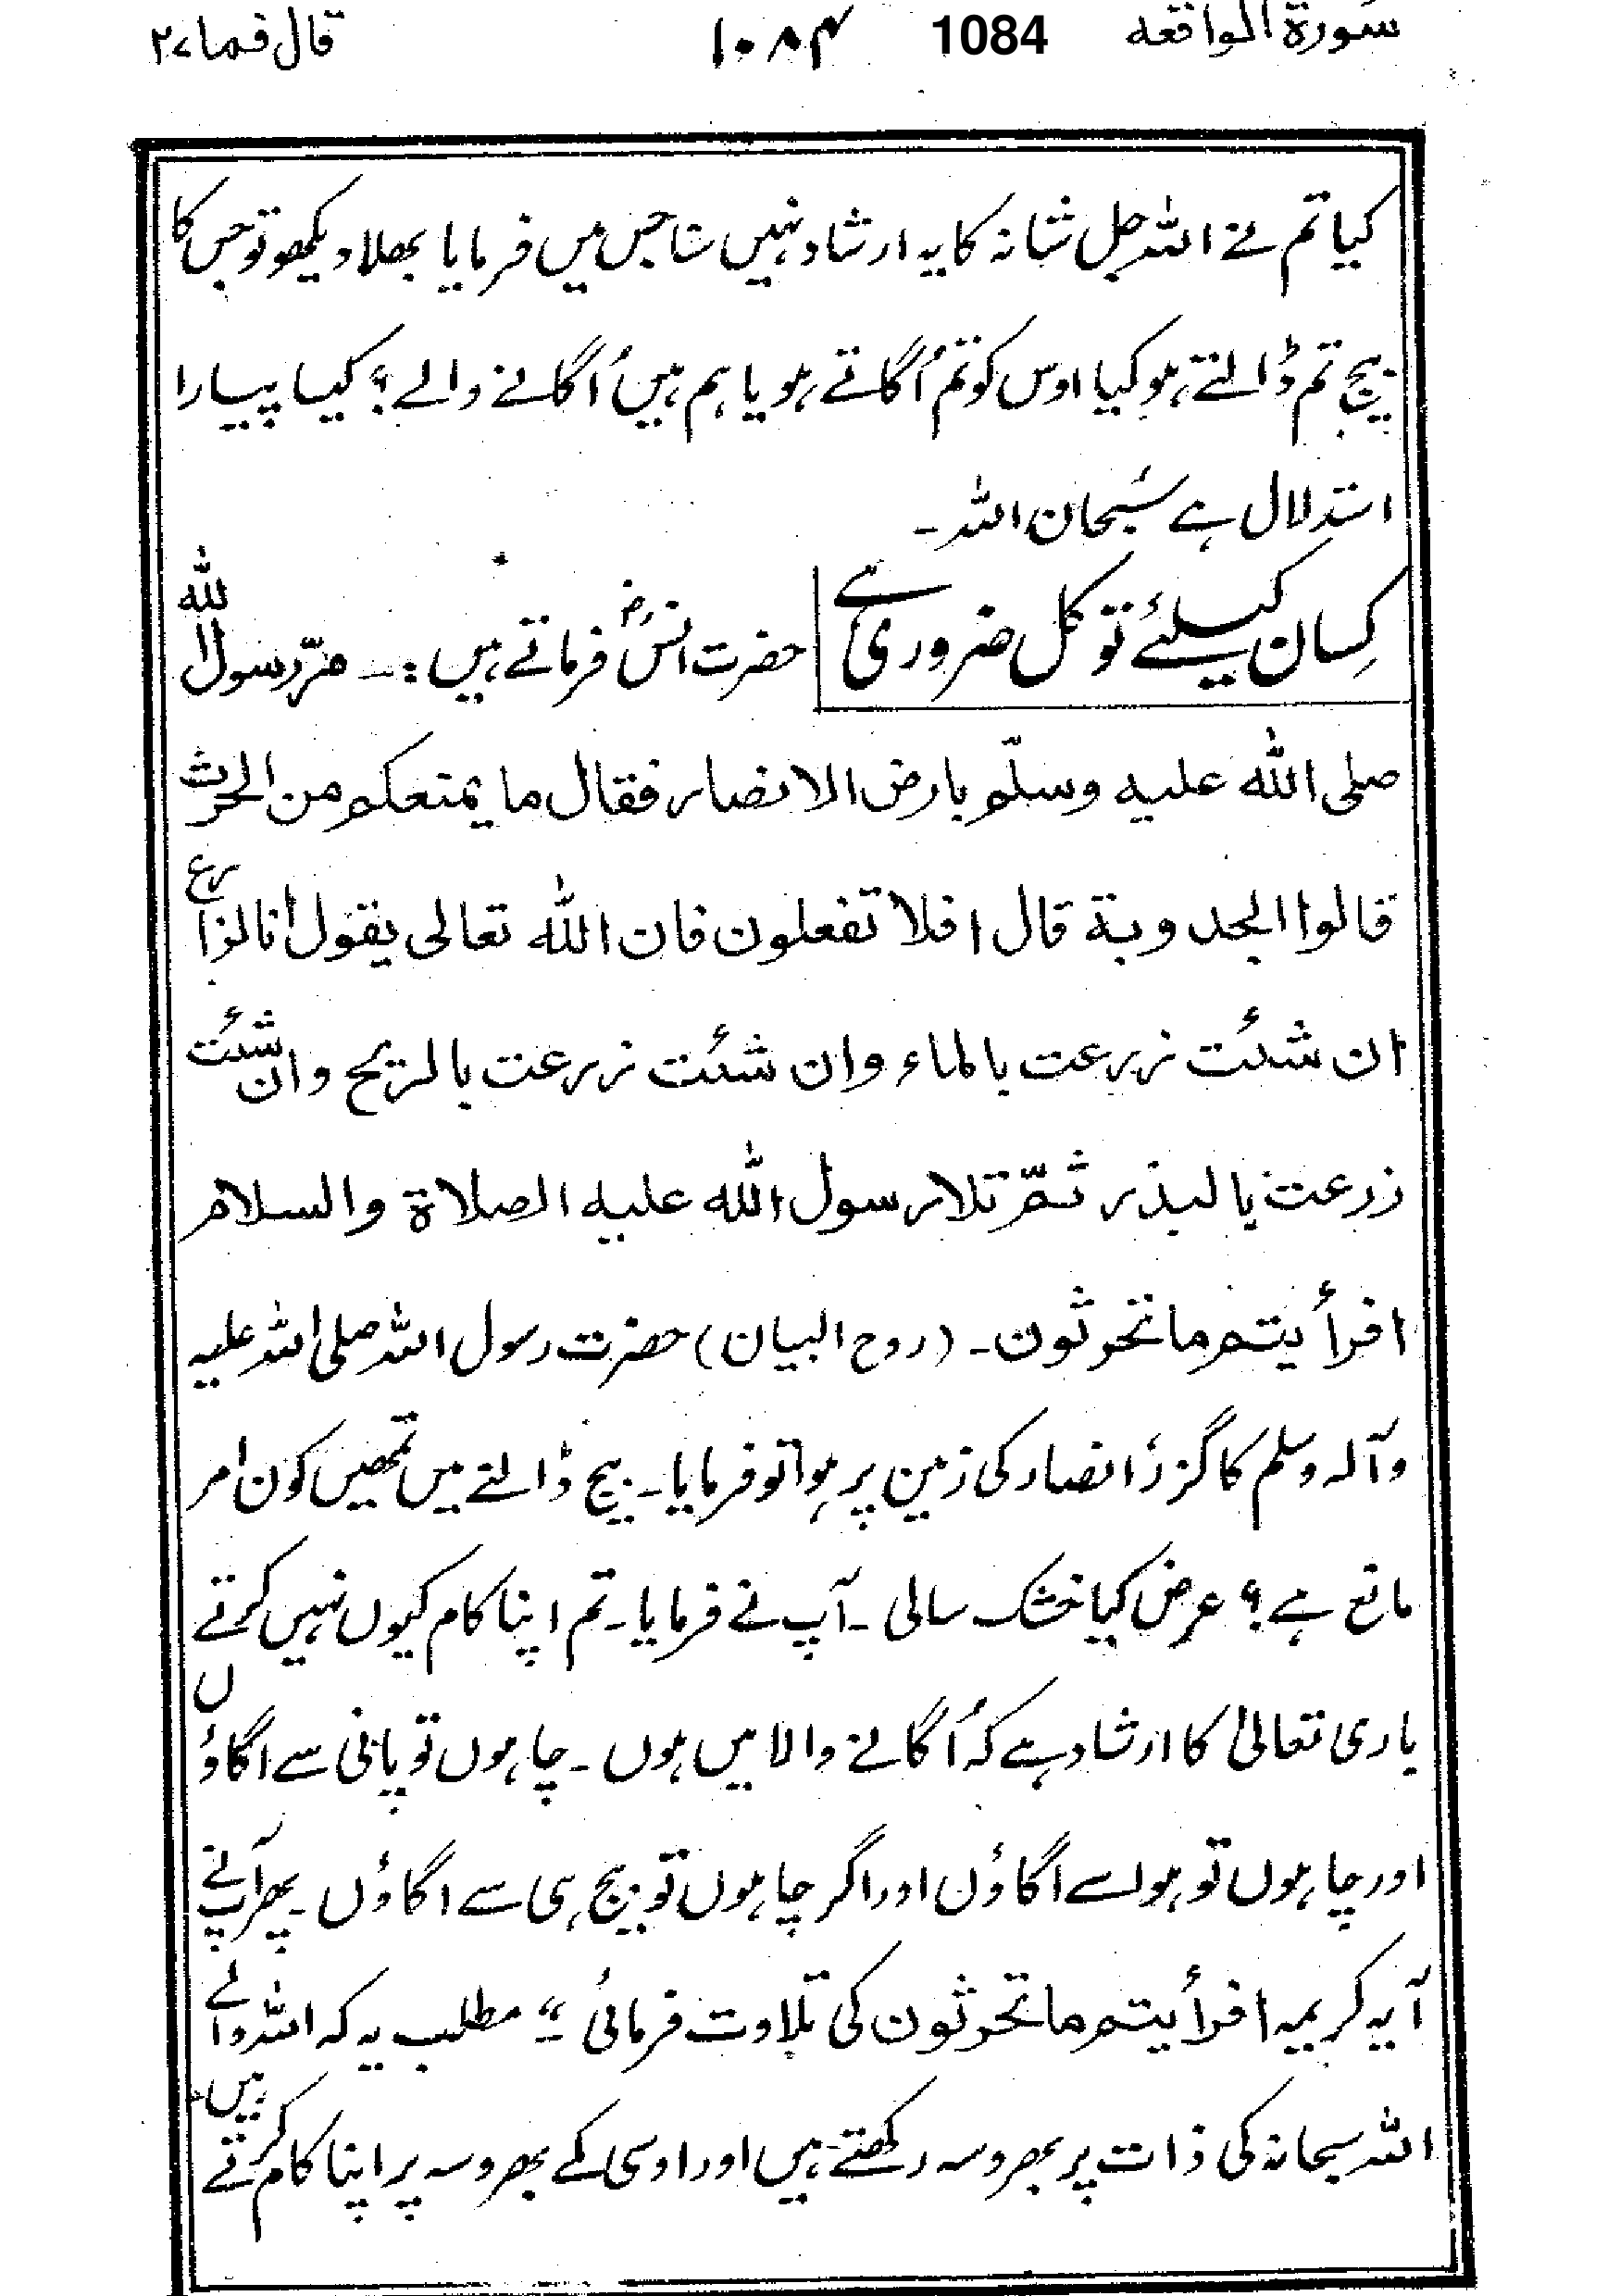 سورة الواقعه 1084 ۱۰۸۴ قال فما ۲۷
کیا تم نے اللہ جل شانہ کا یہ ارشاد نہیں سنا جس میں فرمایا بھلا دیکھو تو جس کا
بیج تم ڈالتے ہو کیا اوس کو تم اُگاتے ہو یا ہم ہیں اُگانے والے؟ کیسا پیارا
استدلال ہے سُبحان اللہ۔
کِسان کیلئے توکل ضروری ہے حضرت انسؓ فرماتے ہیں :۔ مرّ رسول الله
صلى الله عليه وسلّم بارض الانصار فقال ما يمنعكم من الحرث
قالوا الجدوبة قال افلا تفعلون فان الله تعالى يقول أنا لزارع
ان شئت زرعت بالماء وان شئت زرعت بالريح وان شئت
زرعت بالبذر ثمّ تلا رسول الله عليه الصلاة والسلام
افرأيتم ما تحرثون۔ (روح البیان) حضرت رسول اللہ صلی اللہ علیہ
وآلہ وسلم کا گزر انصار کی زمین پر ہوا تو فرمایا۔ بیج ڈالنے میں تمھیں کون امر
مانع ہے؟ عرض کیا خشک سالی۔ آپ نے فرمایا۔ تم اپنا کام کیوں نہیں کرتے
باری تعالیٰ کا ارشاد ہے کہ اُگانے والا میں ہوں۔ چاہوں تو پانی سے اگاؤں
اور چاہوں تو ہوا سے اگاؤں اور اگر چاہوں تو بیج ہی سے اگاؤں۔ پھر آپ نے
آیہ کریمہ افرأيتم ما تحرثون کی تلاوت فرمائی ؛؛ مطلب یہ کہ اللہ والے
اللہ سبحانہ کی ذات پر بھروسہ رکھتے ہیں اور اوسی کے بھروسہ پر اپنا کام کرتے ہیں۔